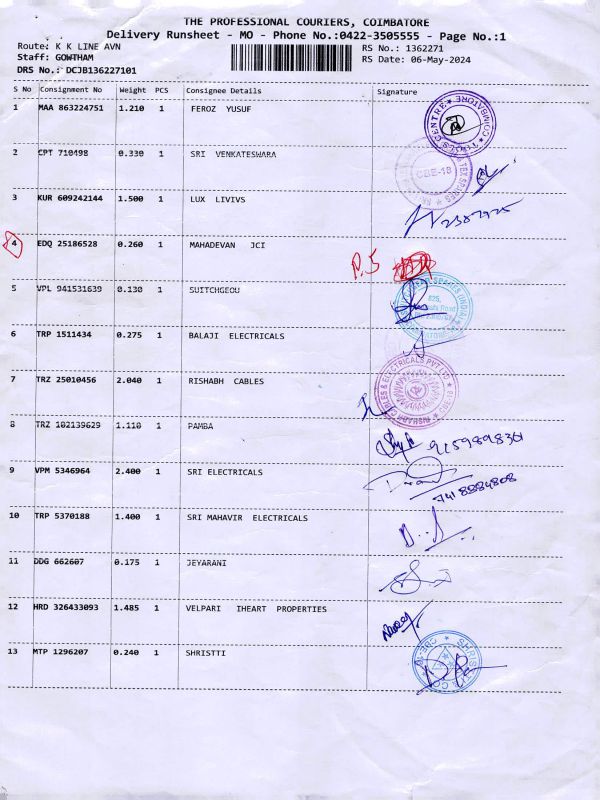 THE PROFESSIONAL COURIERS, COIMBATORE
Delivery Runsheet - MO - Phone No.:0422-3505555 - Page No.:1
Route: K K LINE AVN RS No.: 1362271
Staff: GOWTHAM RS Date: 06-May-2024
DRS No.: DCJB136227101
S No Consignment No Weight PCS Consignee Details Signature
1 MAA 863224751 1.210 1 FEROZ YUSUF
2 CPT 710498 0.330 1 SRI VENKATESWARA
CBE-18
3 KUR 609242144 1.500 1 LUX LIVIVS
4 EDQ 25186528 0.260 1 MAHADEVAN JCI P.S
5 VPL 941531639 0.130 1 SUITCHGEOU
6 TRP 1511434 0.275 1 BALAJI ELECTRICALS
7 TRZ 25010456 2.040 1 RISHABH CABLES
8 TRZ 102139629 1.110 1 PAMBA
9159898361
9 VPM 5346964 2.400 1 SRI ELECTRICALS
7418884808
10 TRP 5370188 1.400 1 SRI MAHAVIR ELECTRICALS
11 DDG 662607 0.175 1 JEYARANI
12 HRD 326433093 1.485 1 VELPARI IHEART PROPERTIES
13 MTP 1296207 0.240 1 SHRISTTI